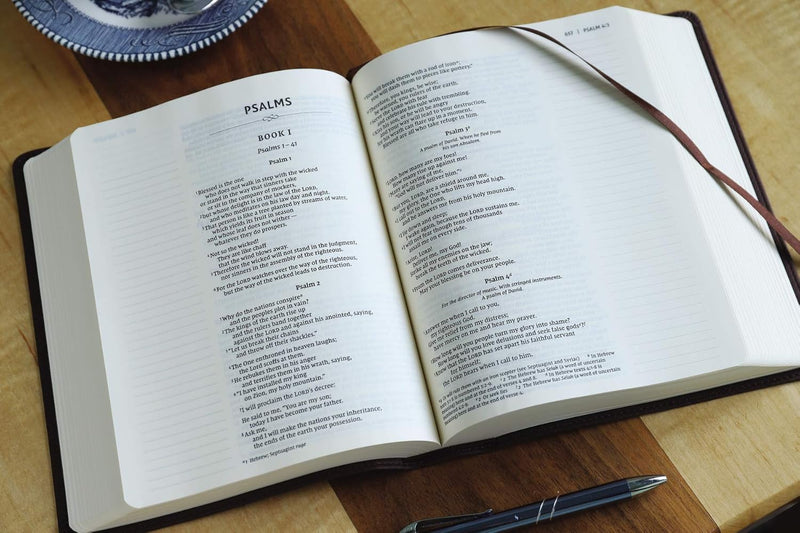 PSALMS
BOOK I
Psalms 1–41
Psalm 1
1Blessed is the one
who does not walk in step with the wicked
or stand in the way that sinners take
or sit in the company of mockers,
2but whose delight is in the law of the LORD,
and who meditates on his law day and night.
3That person is like a tree planted by streams of water,
which yields its fruit in season
and whose leaf does not wither—
whatever they do prospers.
4Not so the wicked!
They are like chaff
that the wind blows away.
5Therefore the wicked will not stand in the judgment,
nor sinners in the assembly of the righteous.
6For the LORD watches over the way of the righteous,
but the way of the wicked leads to destruction.
Psalm 2
1Why do the nations conspire
and the peoples plot in vain?
2The kings of the earth rise up
and the rulers band together
against the LORD and against his anointed, saying,
3"Let us break their chains
and throw off their shackles."
4The One enthroned in heaven laughs;
the Lord scoffs at them.
5He rebukes them in his anger
and terrifies them in his wrath, saying,
6"I have installed my king
on Zion, my holy mountain."
7I will proclaim the LORD's decree:
He said to me, "You are my son;
today I have become your father.
8Ask me,
and I will make the nations your inheritance,
the ends of the earth your possession.
657 | PSALM 4:3
you will break them with a rod of iron
you will dash them to pieces like pottery."
Therefore, you kings, be wise;
be warned, you rulers of the earth.
the LORD with fear
celebrate his rule with trembling.
his son, or he will be angry
and your way will lead to your destruction,
his wrath can flare up in a moment.
Blessed are all who take refuge in him.
Psalm 3
A psalm of David. When he fled from
his son Absalom.
LORD, how many are my foes!
How many rise up against me!
are saying of me,
will not deliver him."
But you, LORD, are a shield around me,
my glory, the One who lifts my head high.
out to the LORD,
and he answers me from his holy mountain.
lie down and sleep;
wake again, because the LORD sustains me.
will not fear though tens of thousands
assail me on every side.
Arise, LORD!
Deliver me, my God!
Strike all my enemies on the jaw;
break the teeth of the wicked.
From the LORD comes deliverance.
May your blessing be on your people.
Psalm 4
For the director of music. With stringed instruments.
A psalm of David.
Answer me when I call to you,
my righteous God.
Give me relief from my distress;
have mercy on me and hear my prayer.
How long will you people turn my glory into shame?
How long will you love delusions and seek false gods?
Know that the LORD has set apart his faithful servant
for himself;
the LORD hears when I call to him.